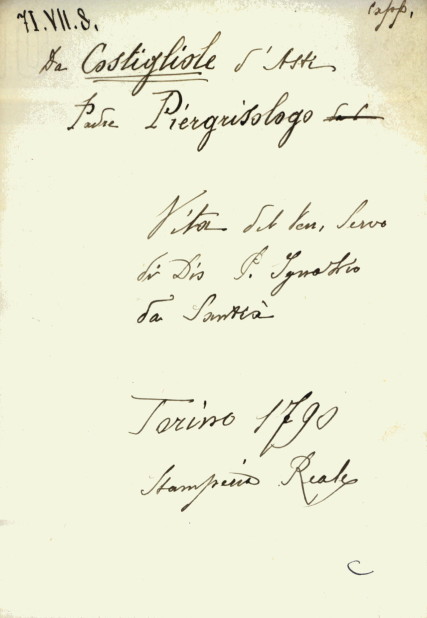 71.VII.8.
Capp.
Da Costigliole d'Asti
Padre Piergrisologo
Vita del Ven. Servo
di Dio P. Ignatio
da Santià
Torino 1790
Stamperia Reale
C